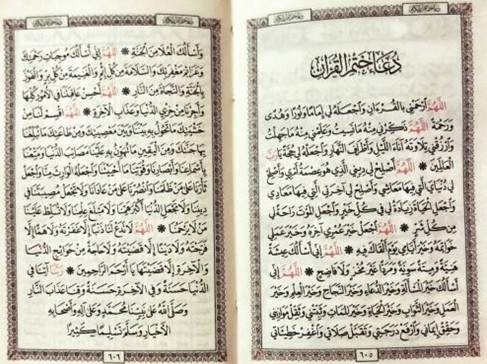 دُعَاءُ خَتْمِ الْقُرْآنِ
اللَّهُمَّ ارْحَمْنِي بِالْقُرْءَانِ وَاجْعَلْهُ لِي إِمَامًا وَنُورًا وَهُدًى
وَرَحْمَةً اللَّهُمَّ ذَكِّرْنِي مِنْهُ مَا نَسِيتُ وَعَلِّمْنِي مِنْهُ مَا جَهِلْتُ
وَارْزُقْنِي تِلَاوَتَهُ آنَاءَ اللَّيْلِ وَأَطْرَافَ النَّهَارِ وَاجْعَلْهُ لِي حُجَّةً يَا رَبَّ
الْعَالَمِينَ * اللَّهُمَّ أَصْلِحْ لِي دِينِي الَّذِي هُوَ عِصْمَةُ أَمْرِي وَأَصْلِحْ
لِي دُنْيَايَ الَّتِي فِيهَا مَعَاشِي وَأَصْلِحْ لِي آخِرَتِي الَّتِي فِيهَا مَعَادِي
وَاجْعَلِ الْحَيَاةَ زِيَادَةً لِي فِي كُلِّ خَيْرٍ وَاجْعَلِ الْمَوْتَ رَاحَةً لِي
مِنْ كُلِّ شَرٍّ * اللَّهُمَّ اجْعَلْ خَيْرَ عُمْرِي آخِرَهُ وَخَيْرَ عَمَلِي
خَوَاتِمَهُ وَخَيْرَ أَيَّامِي يَوْمَ أَلْقَاكَ فِيهِ * اللَّهُمَّ إِنِّي أَسْأَلُكَ عِيشَةً
هَنِيَّةً وَمِيتَةً سَوِيَّةً وَمَرَدًّا غَيْرَ مُخْزٍ وَلَا فَاضِحٍ * اللَّهُمَّ إِنِّي
أَسْأَلُكَ خَيْرَ الْمَسْأَلَةِ وَخَيْرَ الدُّعَاءِ وَخَيْرَ النَّجَاحِ وَخَيْرَ الْعِلْمِ وَخَيْرَ
الْعَمَلِ وَخَيْرَ الثَّوَابِ وَخَيْرَ الْحَيَاةِ وَخَيْرَ الْمَمَاتِ وَثَبِّتْنِي وَثَقِّلْ مَوَازِينِي
وَحَقِّقْ إِيمَانِي وَارْفَعْ دَرَجَتِي وَتَقَبَّلْ صَلَاتِي وَاغْفِرْ خَطِيئَاتِي
٦٠٥
وَأَسْأَلُكَ الْعُلَا مِنَ الْجَنَّةِ * اللَّهُمَّ إِنِّي أَسْأَلُكَ مُوجِبَاتِ رَحْمَتِكَ
وَعَزَائِمَ مَغْفِرَتِكَ وَالسَّلَامَةَ مِنْ كُلِّ إِثْمٍ وَالْغَنِيمَةَ مِنْ كُلِّ بِرٍّ وَالْفَوْزَ
بِالْجَنَّةِ وَالنَّجَاةَ مِنَ النَّارِ * اللَّهُمَّ أَحْسِنْ عَاقِبَتَنَا فِي الْأُمُورِ كُلِّهَا
وَأَجِرْنَا مِنْ خِزْيِ الدُّنْيَا وَعَذَابِ الْآخِرَةِ * اللَّهُمَّ اقْسِمْ لَنَا مِنْ
خَشْيَتِكَ مَا تَحُولُ بِهِ بَيْنَنَا وَبَيْنَ مَعْصِيَتِكَ وَمِنْ طَاعَتِكَ مَا تُبَلِّغُنَا
بِهَا جَنَّتَكَ وَمِنَ الْيَقِينِ مَا تُهَوِّنُ بِهِ عَلَيْنَا مَصَائِبَ الدُّنْيَا وَمَتِّعْنَا
بِأَسْمَاعِنَا وَأَبْصَارِنَا وَقُوَّتِنَا مَا أَحْيَيْتَنَا وَاجْعَلْهُ الْوَارِثَ مِنَّا وَاجْعَلْ
ثَأْرَنَا عَلَى مَنْ ظَلَمَنَا وَانْصُرْنَا عَلَى مَنْ عَادَانَا وَلَا تَجْعَلْ مُصِيبَتَنَا فِي
دِينِنَا وَلَا تَجْعَلِ الدُّنْيَا أَكْبَرَ هَمِّنَا وَلَا مَبْلَغَ عِلْمِنَا وَلَا تُسَلِّطْ عَلَيْنَا
مَنْ لَا يَرْحَمُنَا * اللَّهُمَّ لَا تَدَعْ لَنَا ذَنْبًا إِلَّا غَفَرْتَهُ وَلَا هَمًّا إِلَّا
فَرَّجْتَهُ وَلَا دَيْنًا إِلَّا قَضَيْتَهُ وَلَا حَاجَةً مِنْ حَوَائِجِ الدُّنْيَا
وَالْآخِرَةِ إِلَّا قَضَيْتَهَا يَا أَرْحَمَ الرَّاحِمِينَ * رَبَّنَا آتِنَا فِي
الدُّنْيَا حَسَنَةً وَفِي الْآخِرَةِ حَسَنَةً وَقِنَا عَذَابَ النَّارِ
وَصَلَّى اللَّهُ عَلَى نَبِيِّنَا مُحَمَّدٍ وَعَلَى آلِهِ وَأَصْحَابِهِ
الْأَخْيَارِ وَسَلَّمَ تَسْلِيمًا كَثِيرًا
٦٠٦